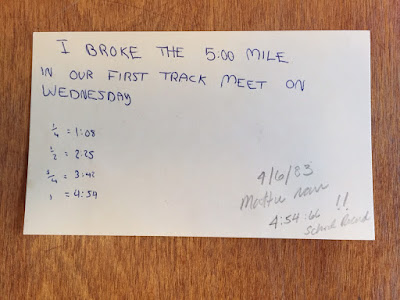 I BROKE THE 5:00 MILE
IN OUR FIRST TRACK MEET ON
WEDNESDAY
1/4 = 1:08
1/2 = 2:25
3/4 = 3:42
1 = 4:54
4/6/83
4:54:66 !!
School Record